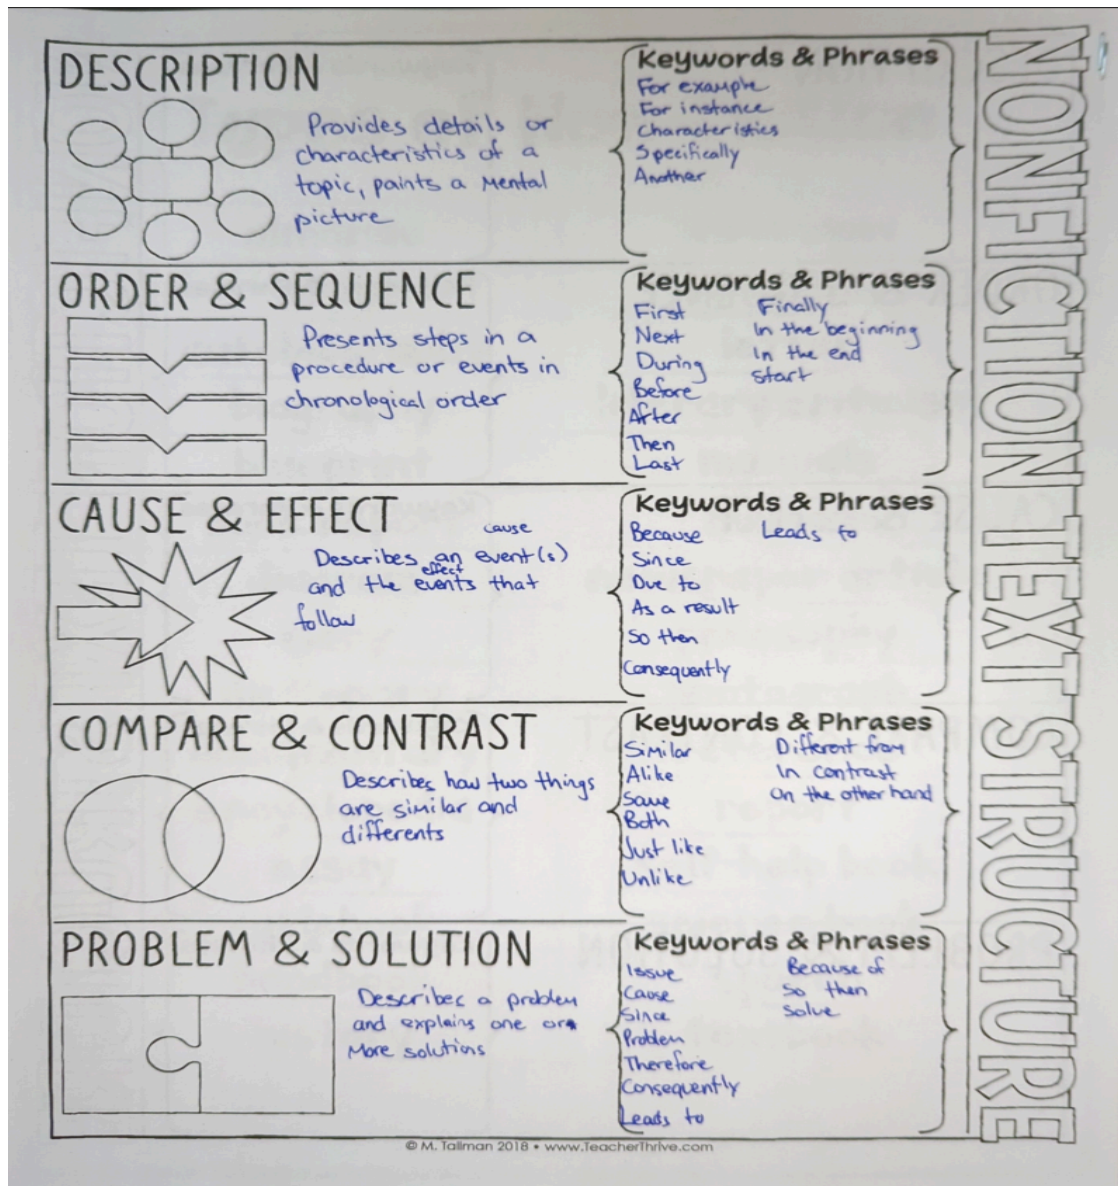 DESCRIPTION
Provides details or
characteristics of a
topic, paints a Mental
picture
Keywords & Phrases
For example
For instance
characteristics
Specifically
Another
ORDER & SEQUENCE
Presents steps in a
procedure or events in
chronological order
Keywords & Phrases
First
Next
During
Before
After
Then
Last
Finally
In the beginning
In the end
start
CAUSE & EFFECT
cause
Describes an event(s)
effect
and the events that
follow
Keywords & Phrases
Because
Since
Due to
As a result
So then
Consequently
Leads to
COMPARE & CONTRAST
Describes how two things
are similar and
differents
Keywords & Phrases
Similar
Alike
Same
Both
Just like
Unlike
Different from
In contrast
On the other hand
PROBLEM & SOLUTION
Describes a problem
and explains one or
More solutions
Keywords & Phrases
Issue
Cause
Since
Problem
Therefore
Consequently
Leads to
Because of
So then
Solve
NONFICTION TEXT STRUCTURE
© M. Tallman 2018 • www.TeacherThrive.com